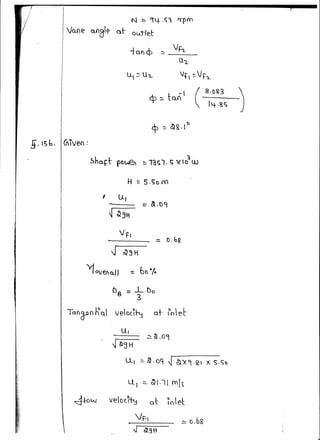 N = 74.53 rpm
Vane angle at outlet
tan ϕ = VF₂ / u₂
u₁ = u₂ VF₁ = VF₂
ϕ = tan⁻¹ ( 8.083 / 14.85 )
ϕ = 28.1°
5. 15 b. Given :
Shaft power = 7357.5 x 10³ W
H = 5.50 m
u₁ / √2gH = 2.09
VF₁ / √2gH = 0.68
ηoverall = 60 %
D_B = 1/3 D₀
Tangential velocity at inlet
u₁ / √2gH = 2.09
u₁ = 2.09 √2x9.81 x 5.50
u₁ = 21.71 m/s
flow velocity at inlet
VF₁ / √2gH = 0.68